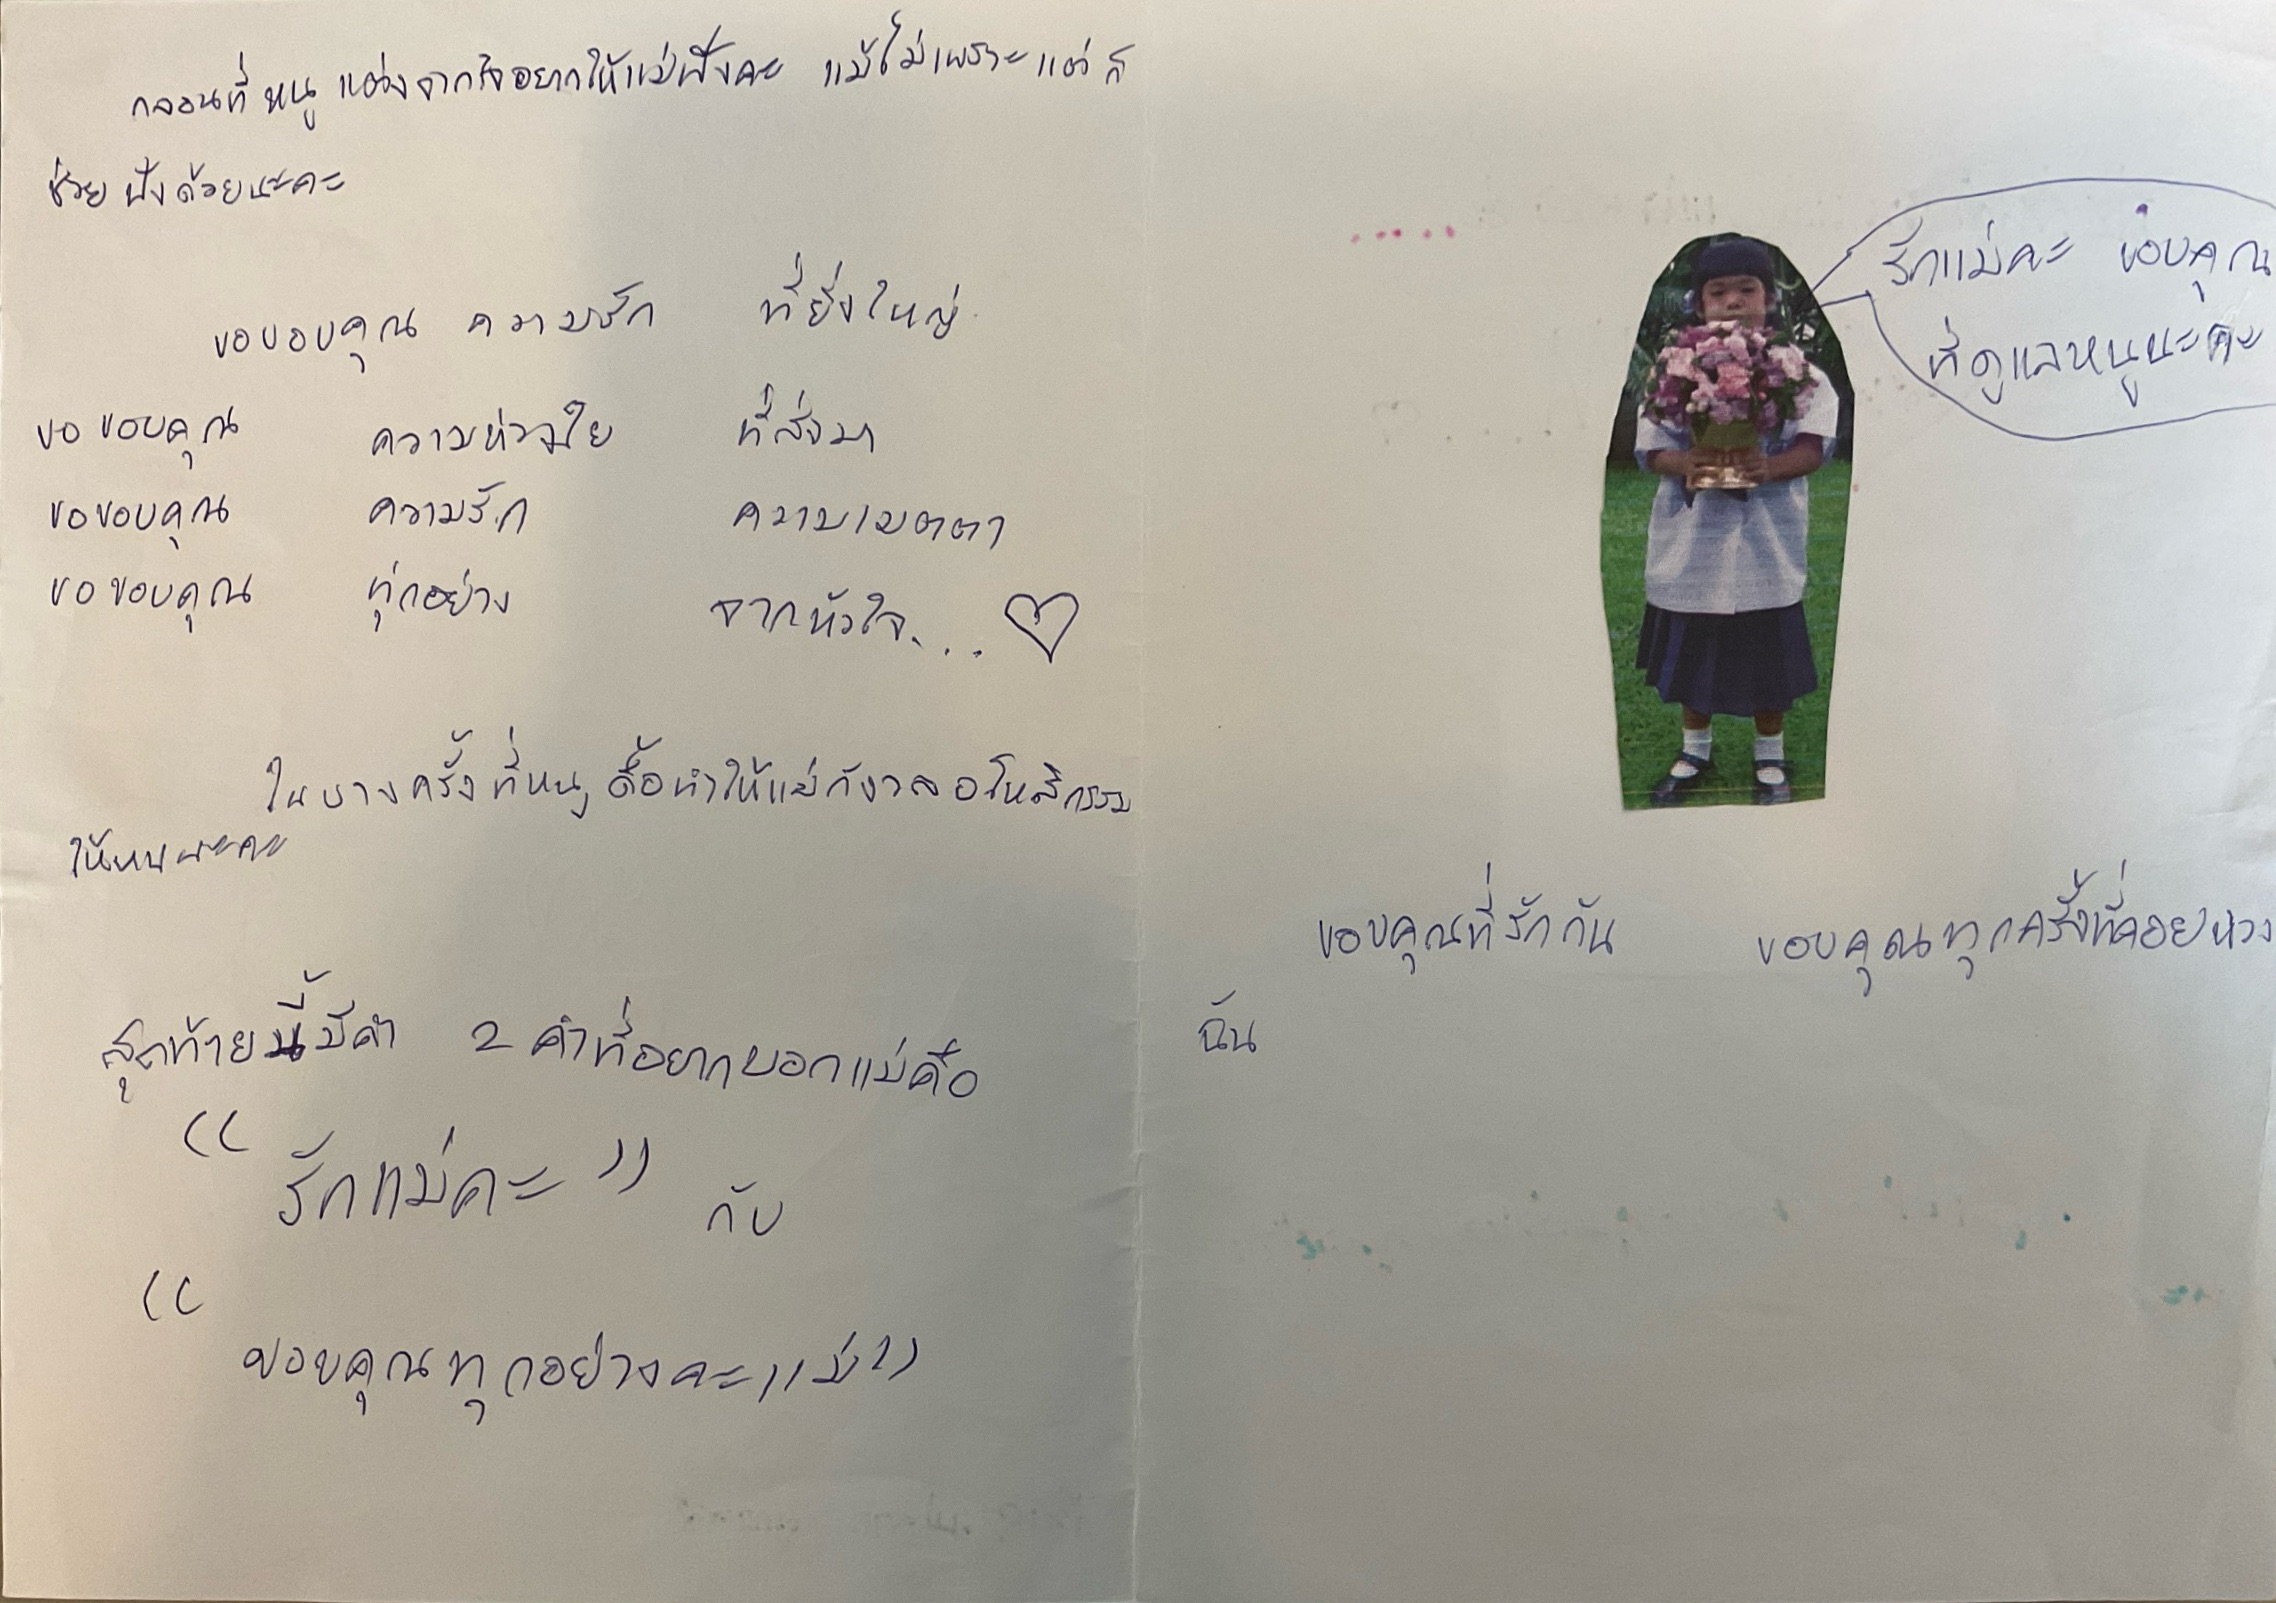 กลอนที่หนูแต่งจากใจอยากให้แม่ฟังคะ แม้ไม่เพราะแต่ก็
ช่วยฟังด้วยนะคะ
ขอขอบคุณ ความรัก ที่ยิ่งใหญ่
ขอขอบคุณ ความห่วงใย ที่ส่งมา
ขอขอบคุณ ความรัก ความเมตตา
ขอขอบคุณ ทุ่กอย่าง จากหัวใจ...
ในบางครั้งที่หนูดื้อทำให้แม่กังวลอโหสิกรรม
ให้หนูนะคะ
สุดท้ายนี้มีคำ 2 คำที่อยากบอกแม่คือ
“รักแม่คะ” กับ
“ขอบคุณทุกอย่างคะแม่”
รักแม่คะ ขอบคุณ
ที่ดูแลหนูนะคะ
ขอบคุณที่รักกัน ขอบคุณทุกครั้งที่คอยห่วง
ฉัน